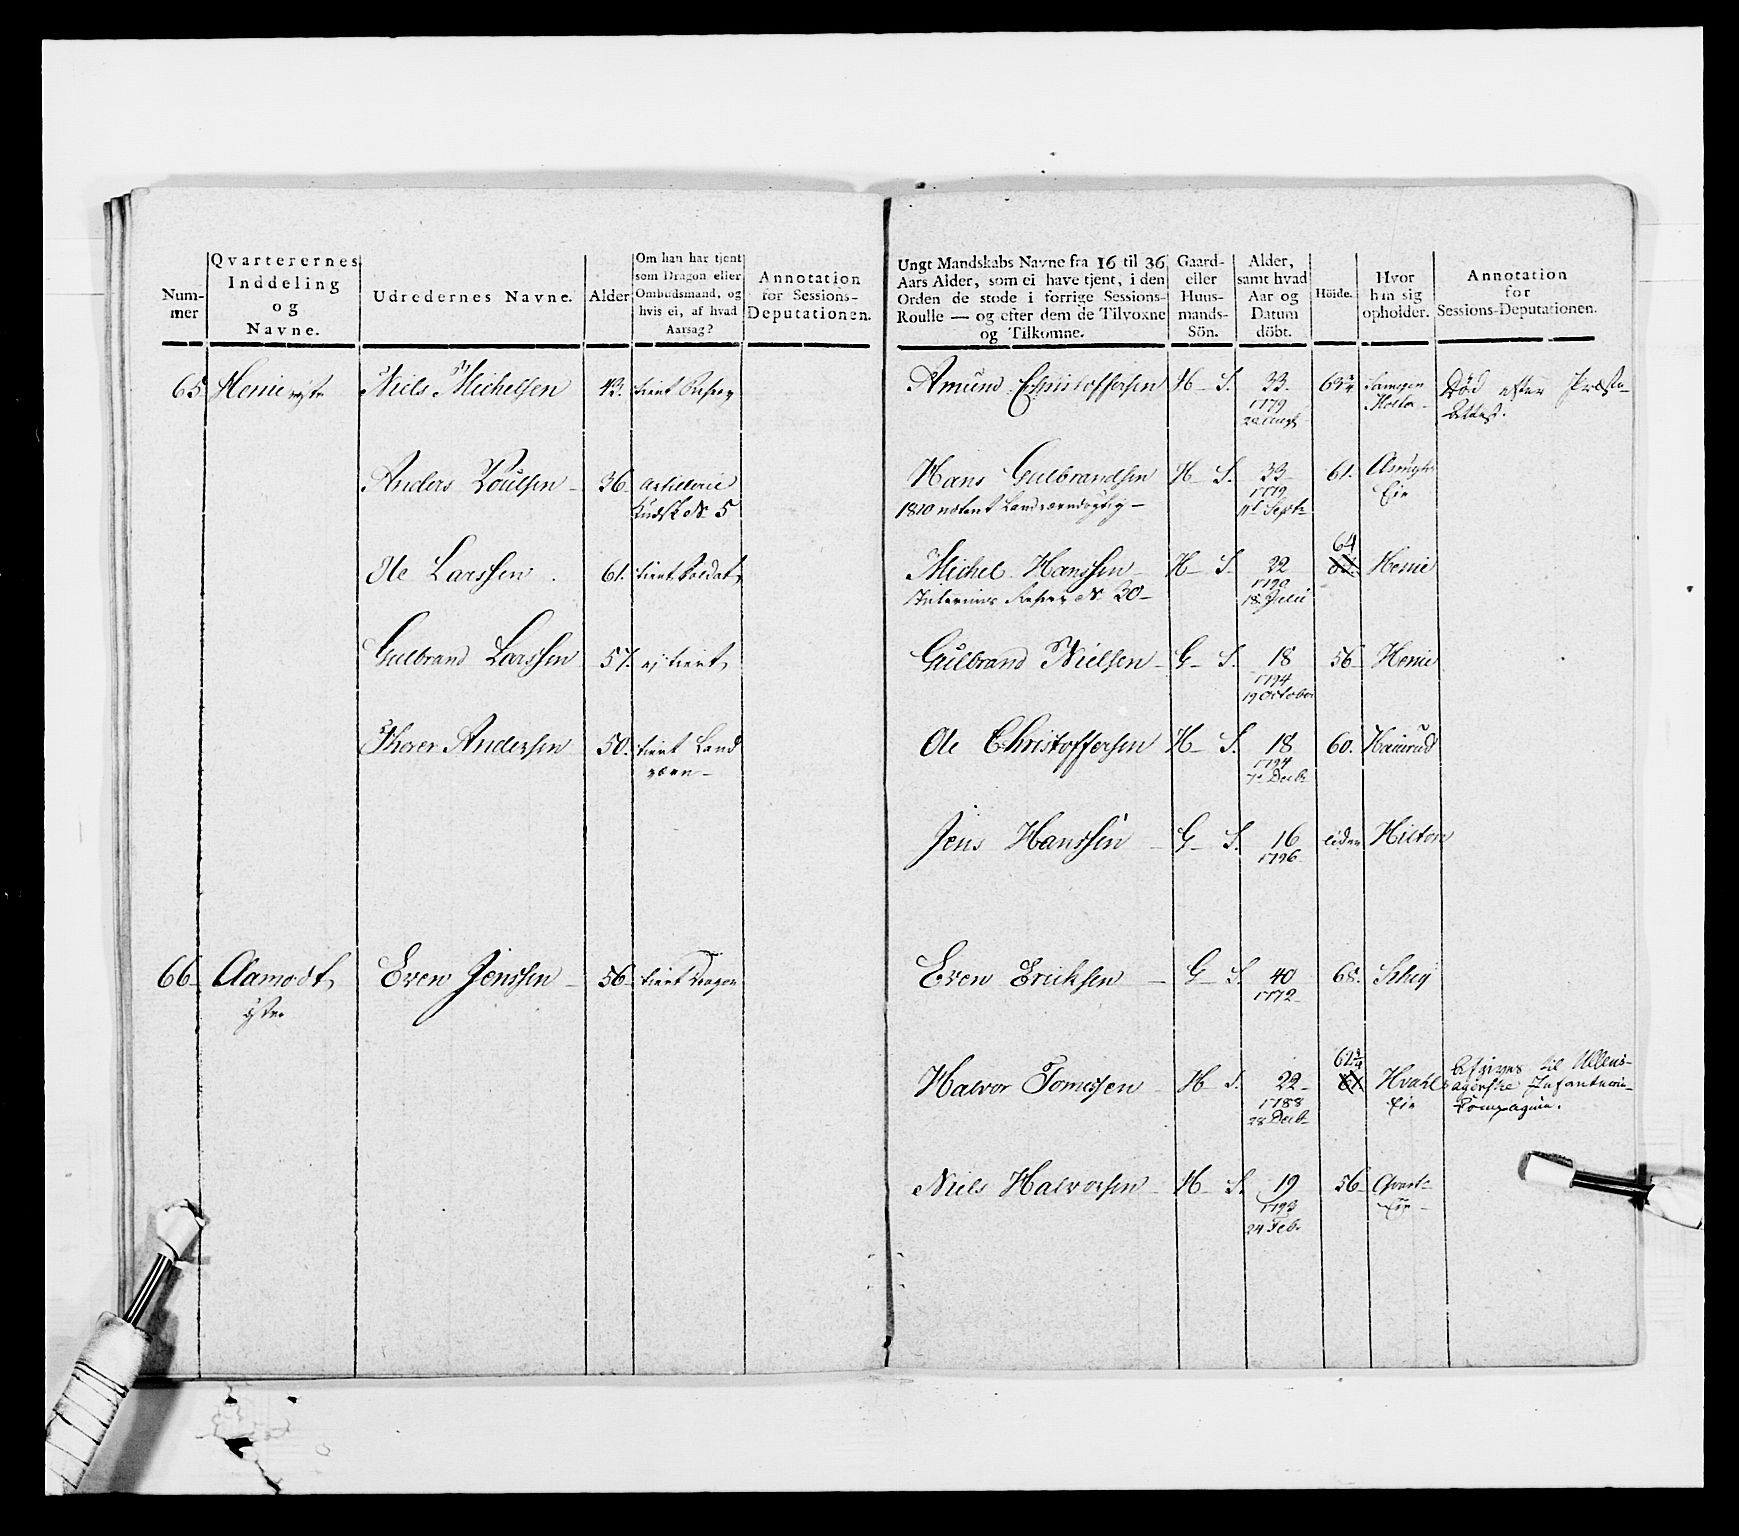 Num-
mer
Qvarterernes
Inddeling
og
Navne.
Udredernes Navne.
Alder
Om han har tjent
som Dragon eller
Ombudsmand, og
hvis ei, af hvad
Aarsag?
Annotation
for Sessions-
Deputationen.
65 Henie Niels Michelsen 43.
Anders Poulsen 36 Artillerie
No 5
Ole Larssen 61. tient Soldat
Gulbrand Larssen 57. ej tient
Thorer Andersen 50. tient Land
værn
66 Aamodt Even Jenssen 56 tient Dragon
østre
Ungt Mandskabs Navne fra 16 til 36
Aars Alder, som ei have tjent, i den
Orden de stode i forrige Sessions-
Roulle — og efter dem de Tilvoxne
og Tilkomne.
Gaard-
eller
Huus-
mands-
Sön.
Alder,
samt hvad
Aar og
Datum
döbt.
Höide.
Hvor
han sig
opholder.
Annotation
for
Sessions-Deputationen.
Amund Christoffersen H S. 33 Død efter Præste-
1779 Attest.
Hans Gulbrandsen H S. 33 61.
1779 Eie
1810 notert Landværndygtig Septr
64
Michel Hanssen H S. 22 Henie
1790
No 30 18 Julii
Gulbrand Nielsen G S. 18 56 Henie
1794
19 October
Ole Christoffersen H S. 18 60.
1794
7 Decbr
Jens Hanssen G S. 16 liden Hilton
1796
Even Ericksen G S. 40 68.
1772
61 3/4
Halvor Tomessen H S. 22 afgives til Ullens-
1788 Eie agerske Infanterie-
28 Decbr Compagnie.
Niels Halvorsen H S. 19 56
1793 Eie
24 Feb.